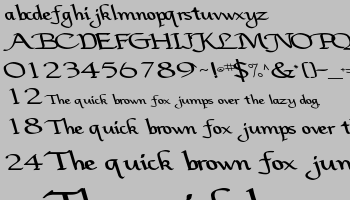 abcdefghijklmnopqrstuvwxyz
ABCDEFGHIJKLMNOPQ
0123456789~!@#$%^&*()-_
12 The quick brown fox jumps over the lazy dog.
18 The quick brown fox jumps over t
24 The quick brown fox jum